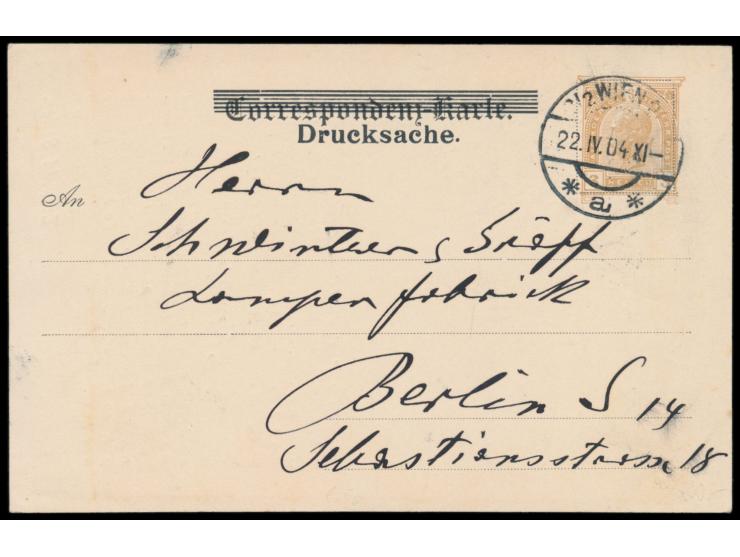 Correspondenz-Karte.
Drucksache.
WIEN
22. IV. 04 XI–
* a *
An
Herrn
Schwintzer & Gräff
Lampenfabrick
Berlin S 14
Sebastiansstrasse 18